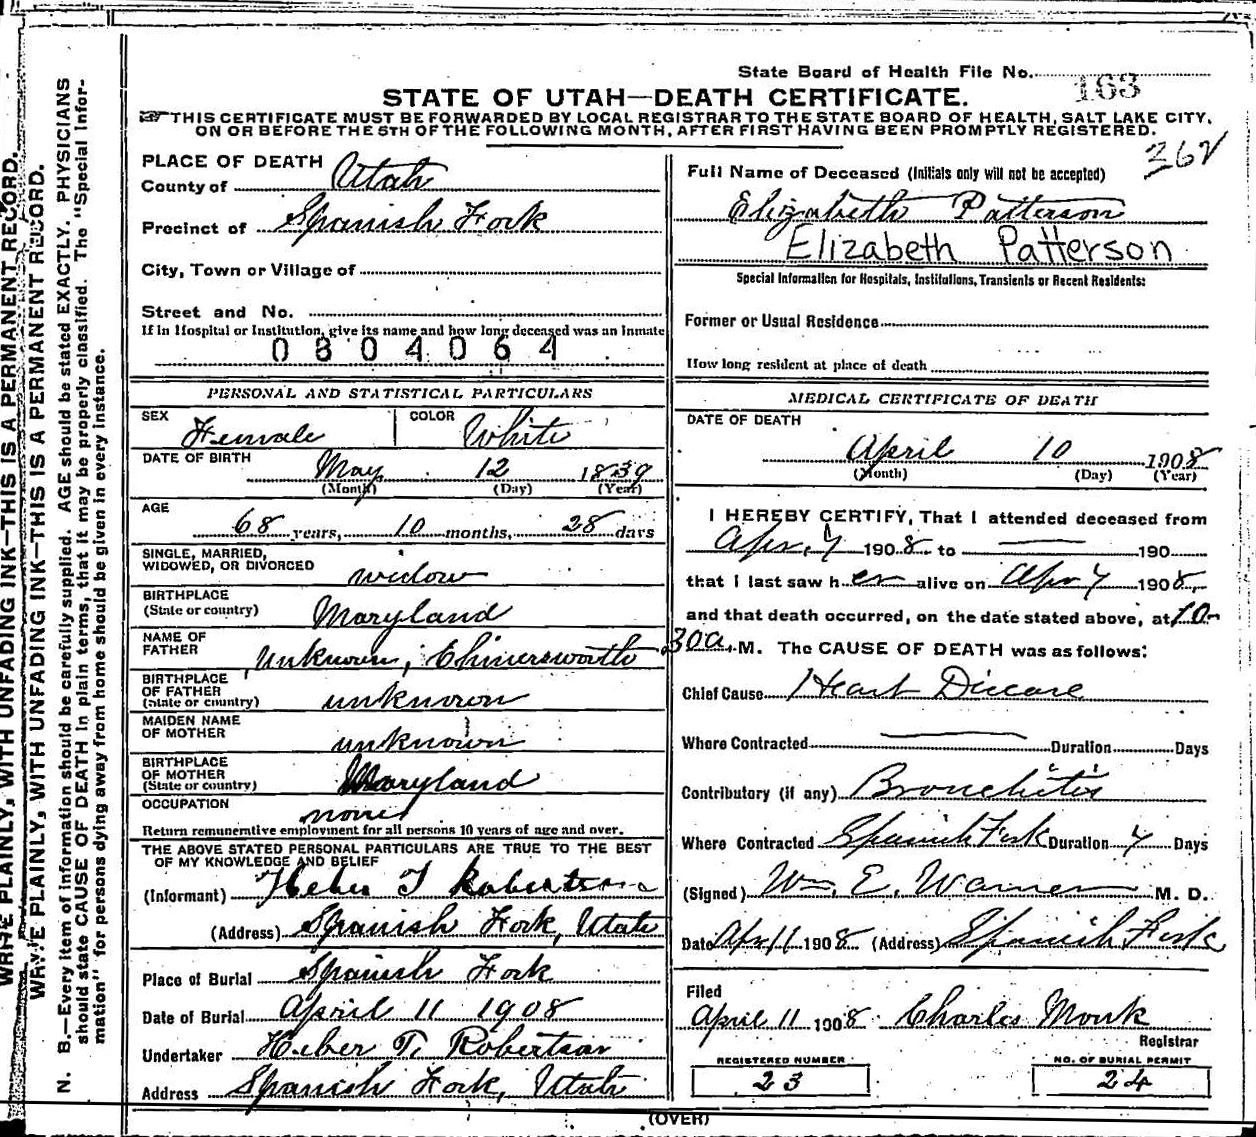 State Board of Health File No. 163
STATE OF UTAH—DEATH CERTIFICATE.
THIS CERTIFICATE MUST BE FORWARDED BY LOCAL REGISTRAR TO THE STATE BOARD OF HEALTH, SALT LAKE CITY,
ON OR BEFORE THE 5TH OF THE FOLLOWING MONTH, AFTER FIRST HAVING BEEN PROMPTLY REGISTERED.
362
PLACE OF DEATH
County of Utah
Precinct of Spanish Fork
City, Town or Village of
Street and No.
If in Hospital or Institution, give its name and how long deceased was an inmate
0804064
PERSONAL AND STATISTICAL PARTICULARS
SEX Female COLOR White
DATE OF BIRTH May 12 1839
(Month) (Day) (Year)
AGE
68 years, 10 months, 28 days
SINGLE, MARRIED,
WIDOWED, OR DIVORCED widow
BIRTHPLACE
(State or country) Maryland
NAME OF
FATHER Unknown, Chinersworth
BIRTHPLACE
OF FATHER
(State or country) unknown
MAIDEN NAME
OF MOTHER unknown
BIRTHPLACE
OF MOTHER
(State or country) Maryland
OCCUPATION none
Return remunerative employment for all persons 10 years of age and over.
THE ABOVE STATED PERSONAL PARTICULARS ARE TRUE TO THE BEST
OF MY KNOWLEDGE AND BELIEF
(Informant) Heber T Robertson
(Address) Spanish Fork, Utah
Place of Burial Spanish Fork
Date of Burial April 11 1908
Undertaker Heber T. Robertson
Address Spanish Fork, Utah
Full Name of Deceased (Initials only will not be accepted)
Elizabeth Patterson
Elizabeth Patterson
Special Information for Hospitals, Institutions, Transients or Recent Residents:
Former or Usual Residence
How long resident at place of death
MEDICAL CERTIFICATE OF DEATH
DATE OF DEATH
April 10 1908
(Month) (Day) (Year)
I HEREBY CERTIFY, That I attended deceased from
Apr. 7 1908 to 190
that I last saw her alive on Apr 7 1908,
and that death occurred, on the date stated above, at 10-
30 a. M. The CAUSE OF DEATH was as follows:
Chief Cause Heart Disease
Where Contracted Duration Days
Contributory (if any) Bronchitis
Where Contracted Spanish Fork Duration 4 Days
(Signed) Wm. E. Warner M. D.
Date Apr 11 1908 (Address) Spanish Fork
Filed
April 11 1908 Charles Monk
Registrar
REGISTERED NUMBER
23
NO. OF BURIAL PERMIT
24
(OVER)
WRITE PLAINLY, WITH UNFADING INK—THIS IS A PERMANENT RECORD.
WRITE PLAINLY, WITH UNFADING INK—THIS IS A PERMANENT RECORD.
N. B.—Every item of information should be carefully supplied. AGE should be stated EXACTLY. PHYSICIANS
should state CAUSE OF DEATH in plain terms, that it may be properly classified. The "Special Infor-
mation" for persons dying away from home should be given in every instance.